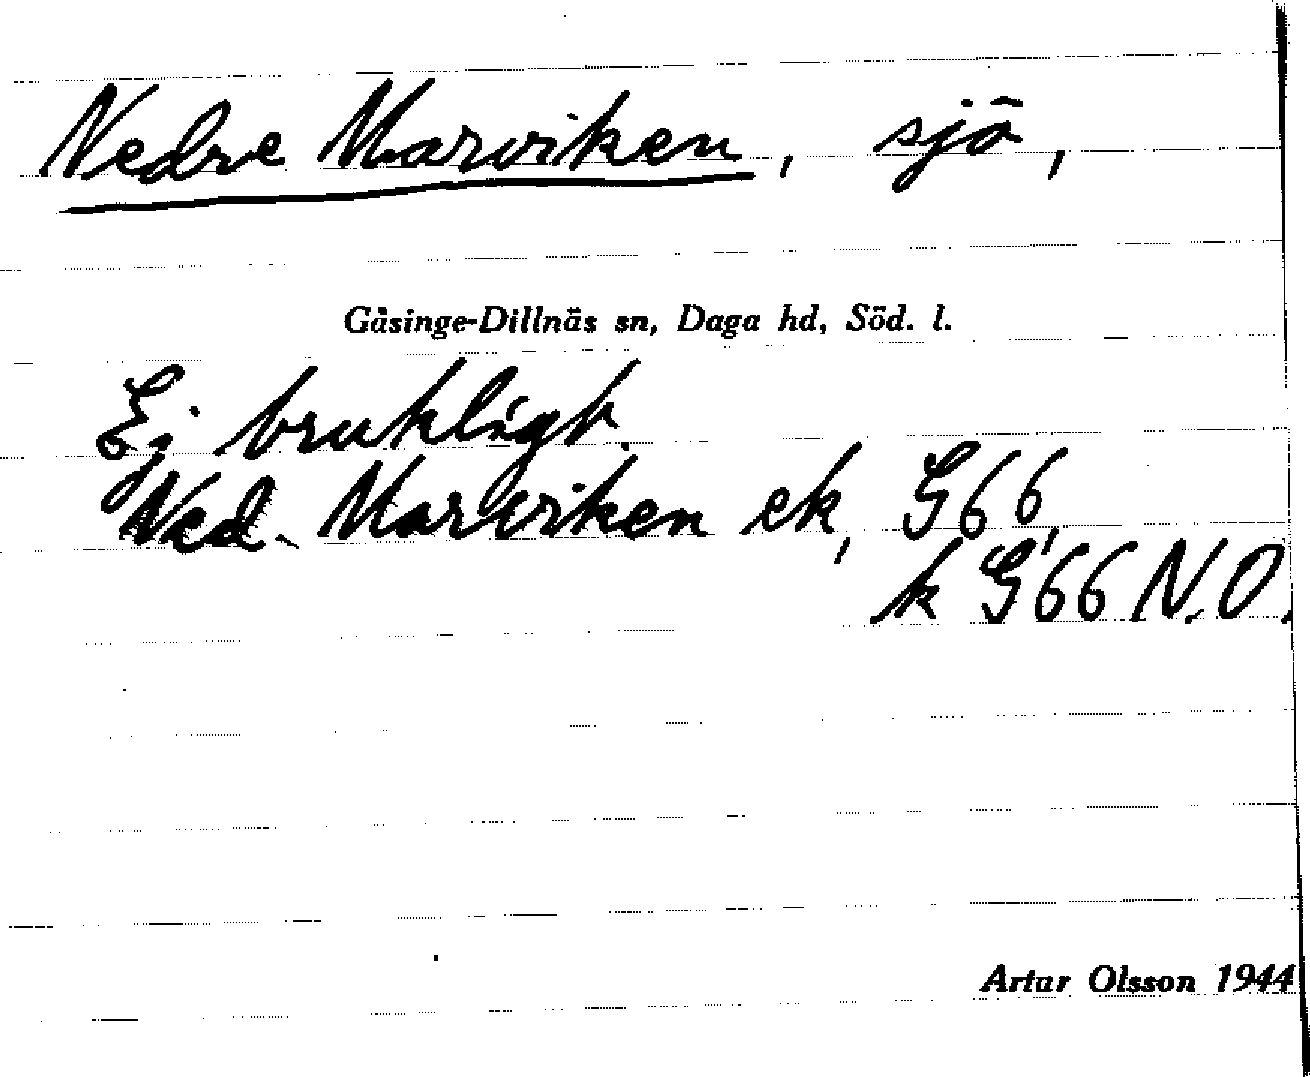 Nedre Marviken, sjö,
Gåsinge-Dillnäs sn, Daga hd, Söd. l.
Ej brukligt.
Ned. Marviken ek, G66,
k G66 N.O.
Artur Olsson 1944